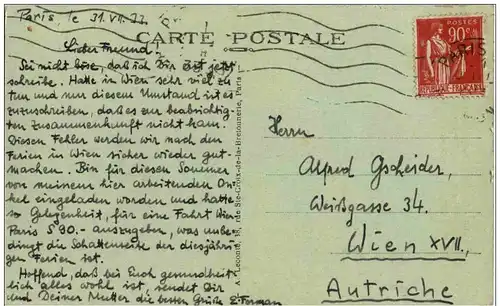 Paris, le 31. VII. 33.
CARTE POSTALE
Lieber Freund.
Sei nicht böse, daß ich Dir erst jetzt
schreibe. Hatte in Wien sehr viel zu
tun und nur diesem Umstand ist es
zuzuschreiben, daß es zur beabsichtig-
ten Zusammenkunft nicht kam.
Diesen Fehler werden wir nach den
Ferien in Wien sicher wieder gut-
machen. Bin für diesen Sommer
von meinem hier arbeitenden On-
kel eingeladen worden und hatte
so Gelegenheit, für eine Fahrt Wien-
Paris S 90.- auszugeben, was unbe-
dingt die Schattenseite der diesjähri-
gen Ferien ist.
Hoffend, daß bei Euch gesundheit-
lich alles wohl ist, sendet Dir
und Deiner Mutter die besten Grüße E. Forman
A. Leconte, 38, rue Ste-Croix-de-la-Bretonnerie, Paris
POSTES
90c
REPUBLIQUE FRANÇAISE
PARIS
Herrn
Alfred Gscheider,
Weißgasse 34.
Wien XVII.,
Autriche